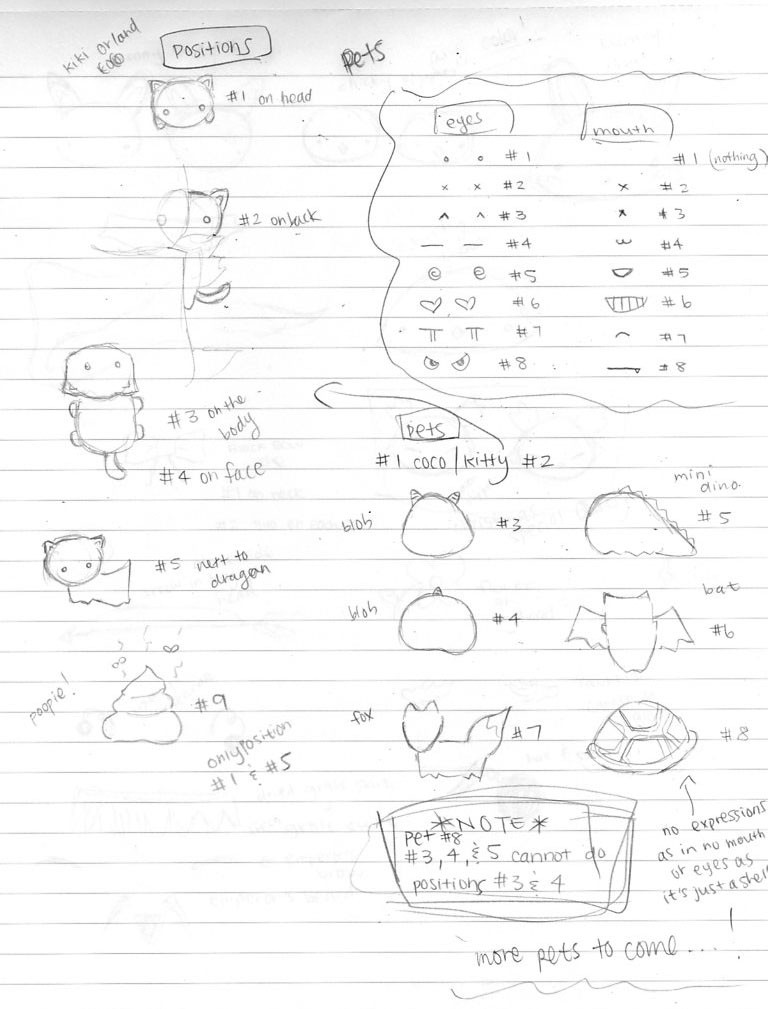 positions
#1 on head
#2 on back
#3 on the
body
#4 on face
#5 next to
dragon
poopie!
#9
only position
#1 & #5
pets
eyes
#1
#2
#3
#4
#5
#6
#7
#8
mouth
#1 (nothing)
#2
#3
#4
#5
#6
#7
#8
pets
#1 coco/kitty #2
blob #3
mini
dino.
#5
blob #4
bat
#6
fox #7
#8
no expressions
as in no mouth
or eyes as
it's just a shell
*NOTE*
pet #8
#3, 4, & 5 cannot do
positions #3 & 4
more pets to come...!